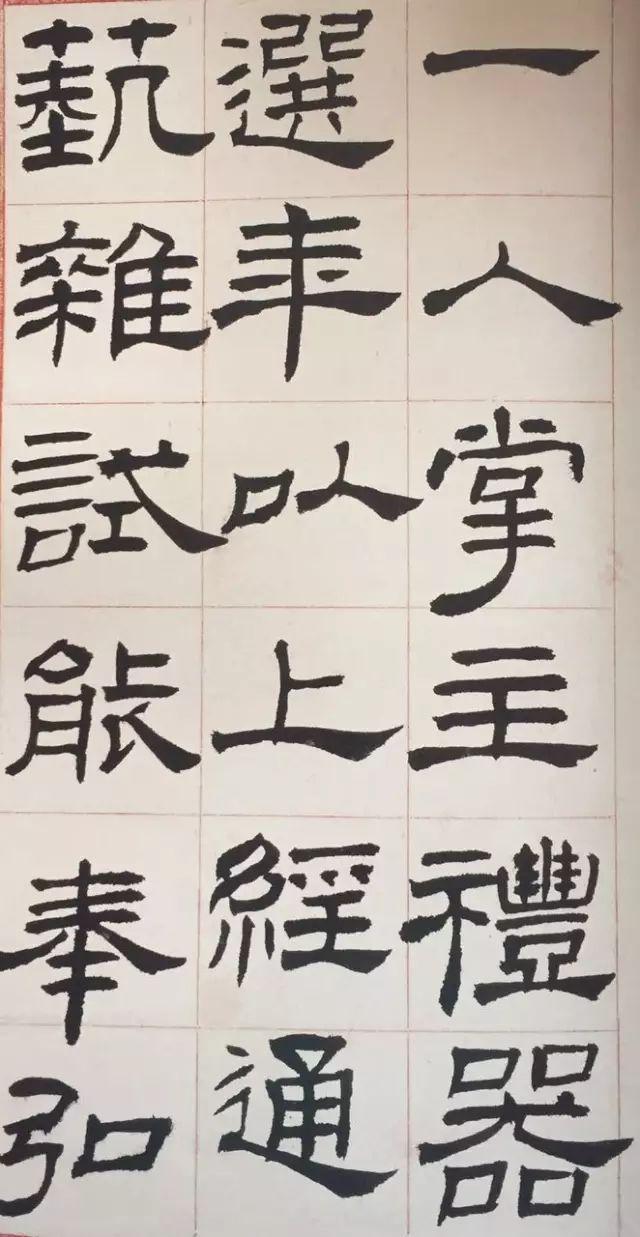 一人掌主禮器
選年以上經通
蓺雜試能奉弘